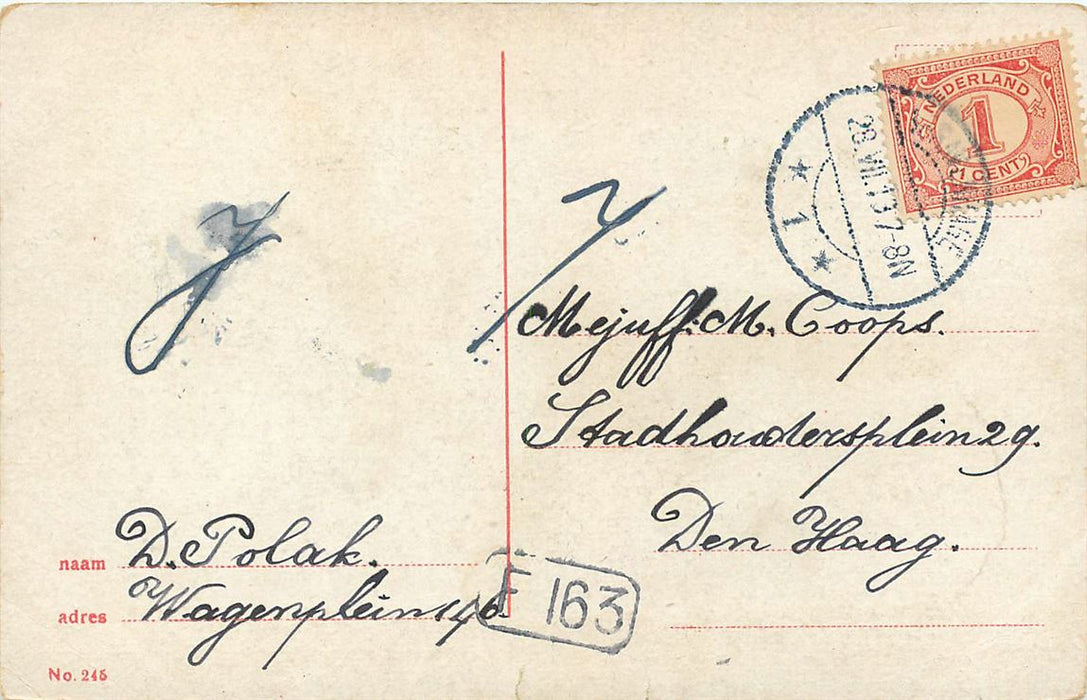 NEDERLAND
1
1 CENT
28.VII.13.7-8N
1
Mejuff: M. Coops.
Stadhoudersplein 29.
Den Haag.
naam D. Polak.
adres Wagenplein 146
F 163
No. 245